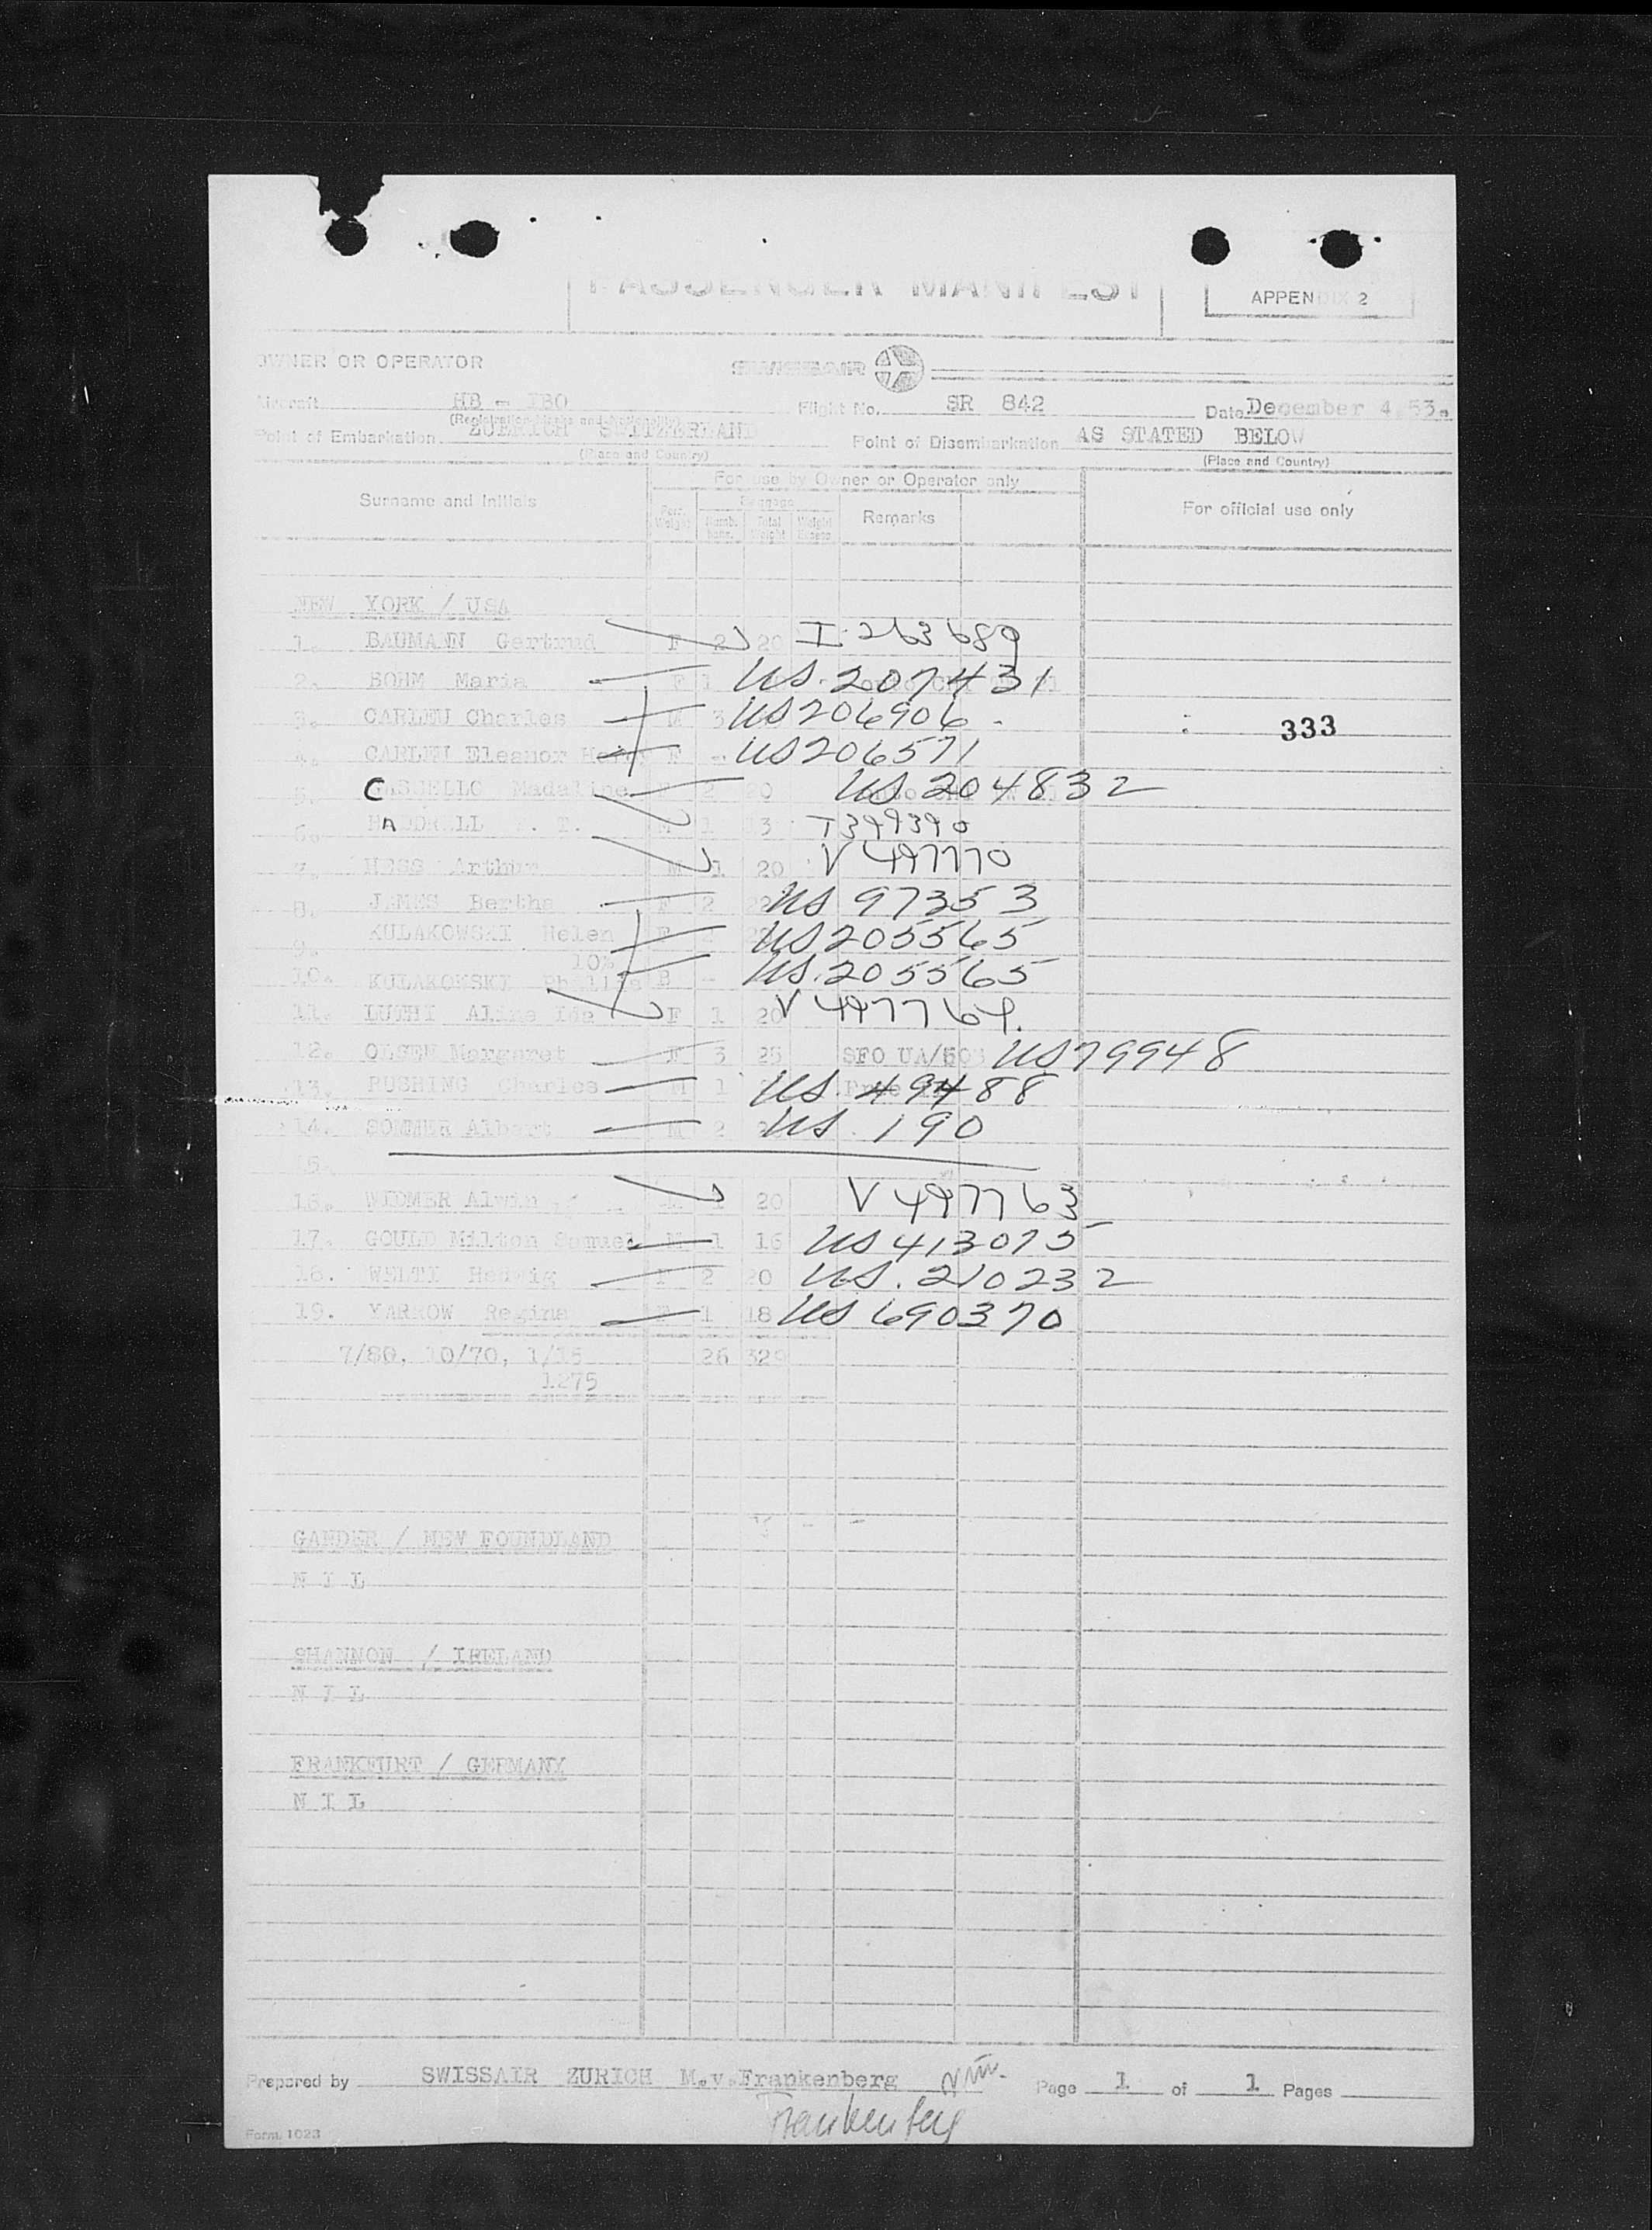 PASSENGER MANIFEST
APPENDIX 2
OWNER OR OPERATOR SWISSAIR
Aircraft HB - IBO Flight No. SR 842 Date December 4.53.
(Registration Marks and Nationality)
Point of Embarkation ZUERICH SWITZERLAND Point of Disembarkation AS STATED BELOW
(Place and Country) (Place and Country)
For use by Owner or Operator only
Surname and Initials Baggage Remarks For official use only
Pass. Weight Total Weight Weight Excess
NEW YORK / USA
1. BAUMANN Gertrud F 2 20 I-263689
2. BOHM Maria F 1 US 207431
3. CARLEN Charles M 3 US 206906
333
4. CARLEN Eleanor F - US 206571
5. CASSELLO Madaline F 2 20 US 204832
6. M 1 13 T399390
7. HESS Arthur M 1 20 V 497770
8. JAMES Bertha F 2 US 97353
9. KULAKOWSKI Helen F 2 US 205565
10%
10. KULAKOWSKI B - US.205565
11. LUTHI Aline Ida F 1 20 V 497764.
12. OLSEN Margaret F 3 25 SFO UA/503 US 79948
13. RUSHING Charles M 1 US.49488
14. SOMMER Albert M 2 US 190
15.
16. WIDMER Alwin M 1 20 V 497763
17. GOULD Milton Samuel M 1 16 US 413075
18. WELTI Hedwig F 2 20 US.210232
19. YARROW Regina F 1 18 US 690370
7/80, 10/70, 1/15 26 329
1275
GANDER / NEW FOUNDLAND
N I L
SHANNON / IRELAND
N I L
FRANKFURT / GERMANY
N I L
Prepared by SWISSAIR ZURICH M.v.Frankenberg Page 1 of 1 Pages
Frankenberg
Form. 1023